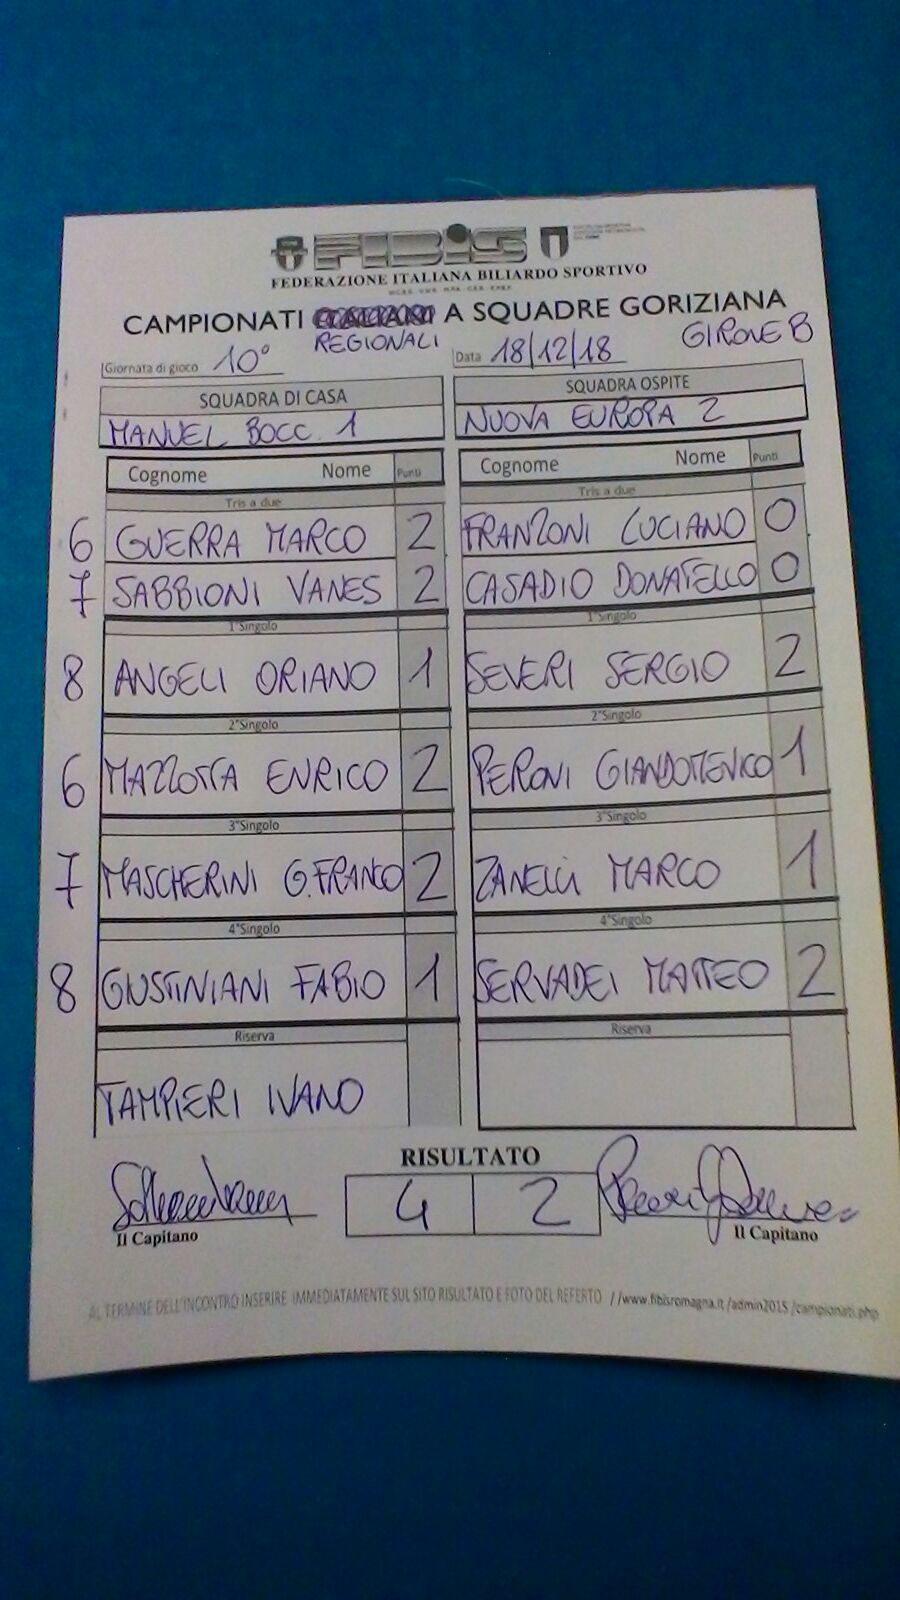 FIBIS
FEDERAZIONE ITALIANA BILIARDO SPORTIVO
CAMPIONATI A SQUADRE GORIZIANA
REGIONALI
GIRONE B
Giornata di gioco 10° Data 18/12/18
SQUADRA DI CASA SQUADRA OSPITE
MANUEL BOCC. 1 NUOVA EUROPA 2
Cognome Nome Punti Cognome Nome Punti
Tris a due Tris a due
6 GUERRA MARCO 2 FRANZONI LUCIANO 0
7 SABBIONI VANES 2 CASADIO DONATELLO 0
1°Singolo 1°Singolo
8 ANGELI ORIANO 1 SEVERI SERGIO 2
2°Singolo 2°Singolo
6 MAZZOTTA ENRICO 2 PERONI GIANDOMENICO 1
3°Singolo 3°Singolo
7 MASCHERINI G.FRANCO 2 ZANELLI MARCO 1
4°Singolo 4°Singolo
8 GIUSTINIANI FABIO 1 SERVADEI MATTEO 2
Riserva Riserva
TAMPIERI IVANO
RISULTATO
4 2
Il Capitano Il Capitano
AL TERMINE DELL'INCONTRO INSERIRE IMMEDIATAMENTE SUL SITO RISULTATO E FOTO DEL REFERTO //www.fibisromagna.it/admin2015/campionati.php